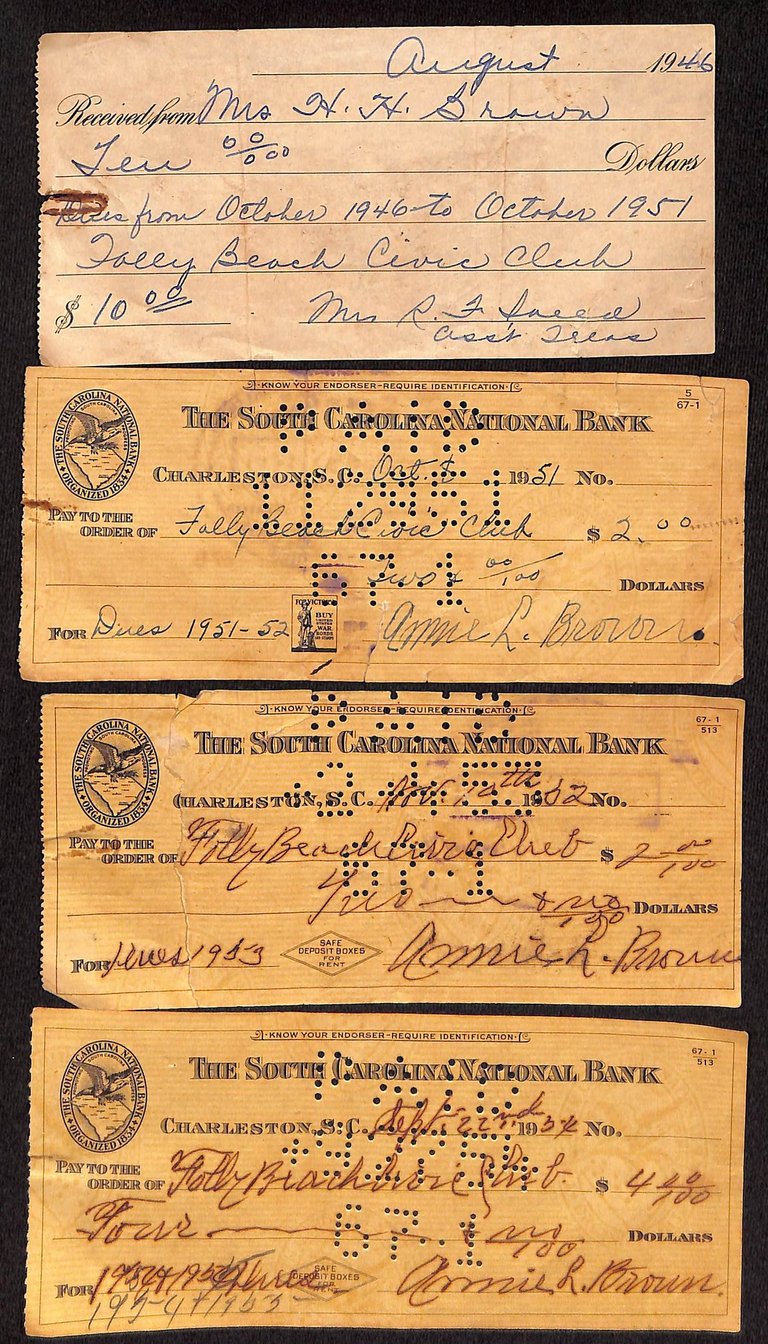 August 1946
Received from Mrs H. H. Brown
Ten 00/000 Dollars
Dues from October 1946 to October 1951
Folly Beach Civic Club
$ 10 00 Mrs R. F.
Asst Treas
KNOW YOUR ENDORSER-REQUIRE IDENTIFICATION
5
67-1
THE SOUTH CAROLINA NATIONAL BANK
THE SOUTH CAROLINA NATIONAL BANK
ORGANIZED 1834
PAID
CHARLESTON, S.C. Oct. 1951 No.
PAY TO THE
ORDER OF Folly Beach Civic Club $ 2.00
67-1
Two & 00/100 DOLLARS
FOR VICTORY
BUY
UNITED
STATES
WAR
BONDS
AND STAMPS
FOR Dues 1951-52 Annie L. Brown
KNOW YOUR ENDORSER-REQUIRE IDENTIFICATION
67-1
513
THE SOUTH CAROLINA NATIONAL BANK
THE SOUTH CAROLINA NATIONAL BANK
ORGANIZED 1834
PAID
CHARLESTON, S.C. Nov. 1952 No.
PAY TO THE
ORDER OF Folly Beach Civic Club $ 2 00/100
67-1
Two & no/100 DOLLARS
SAFE
DEPOSIT BOXES
FOR
RENT
FOR Dues 1953 Annie L. Brown
KNOW YOUR ENDORSER-REQUIRE IDENTIFICATION
67-1
513
THE SOUTH CAROLINA NATIONAL BANK
THE SOUTH CAROLINA NATIONAL BANK
ORGANIZED 1834
PAID
CHARLESTON, S.C. Sept. 22nd 1954 No.
PAY TO THE
ORDER OF Folly Beach Civic Club. $ 4 00/100
67-1
Four & no/100 DOLLARS
SAFE
DEPOSIT BOXES
FOR
RENT
FOR Annie L. Brown.